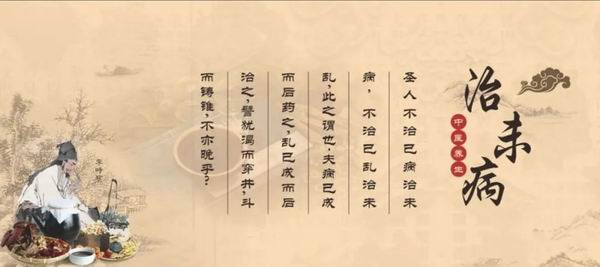 治未病
中医养生
圣人不治已病治未
病，不治已乱治未
乱，此之谓也。夫病已成
而后药之，乱已成而后
治之，譬犹渴而穿井，斗
而铸锥，不亦晚乎？
李时珍